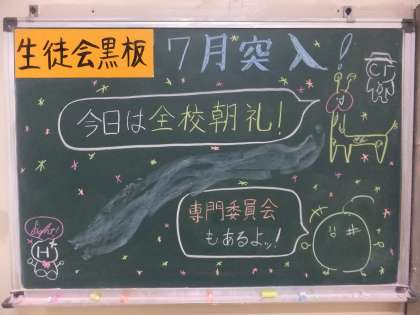 生徒会黒板
7月突入
今日は全校朝礼!
専門委員会
もあるよッ!
fight!
H